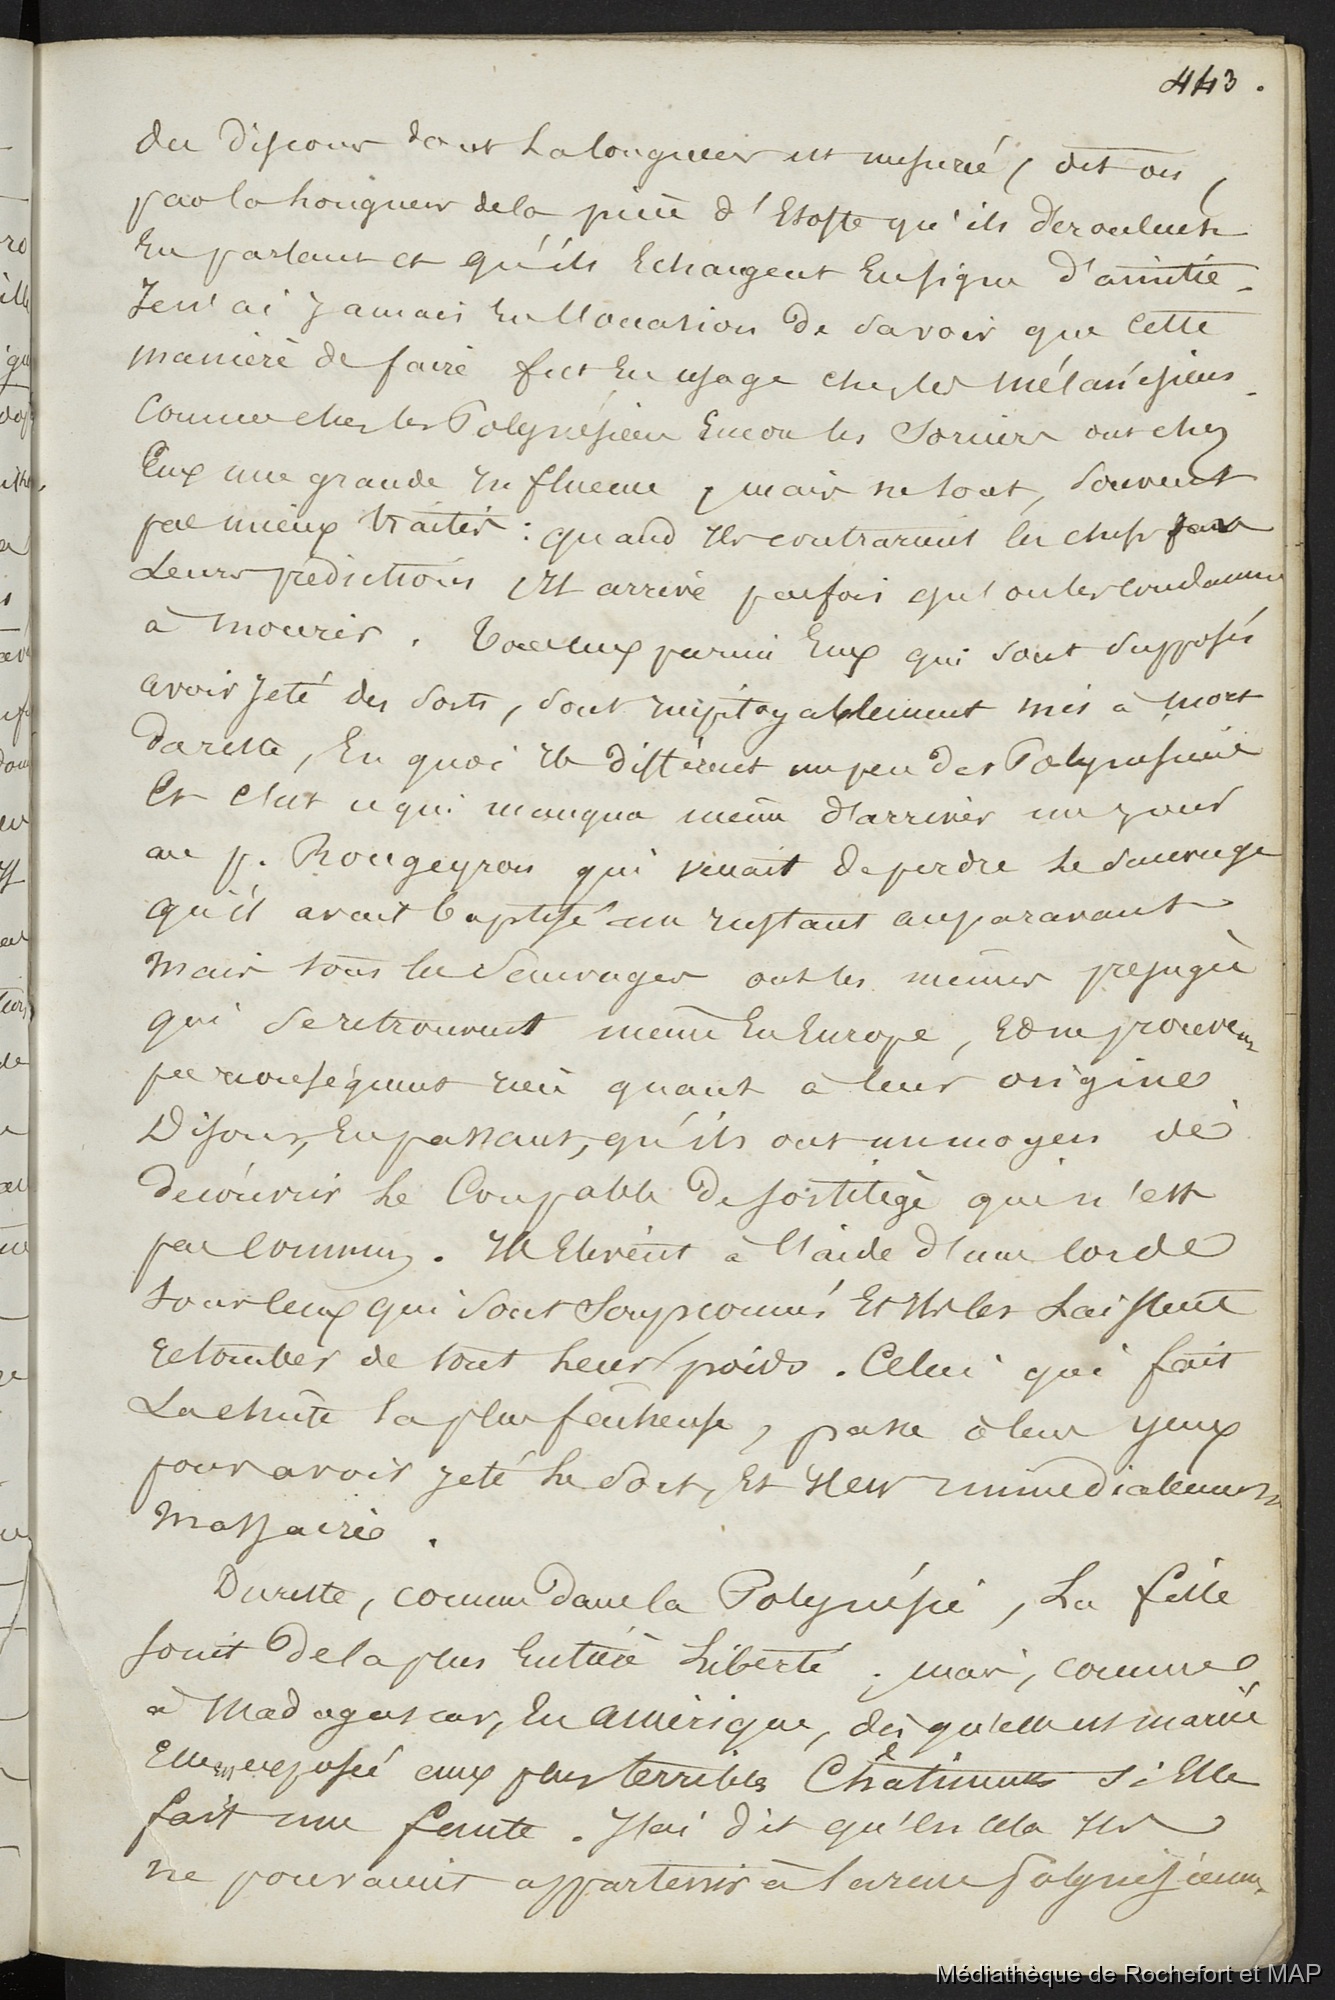 443.
des discours dont la longueur est mesurée, dit on,
par la longueur de la pièce d'Etoffe qu'ils déroulent
En parlant et qu'ils Echangent En signe d'amitié.
Je n'ai jamais Eu l'occasion de savoir que cette
manière de faire fut En usage chez les mélanésiens.
Comme chez les Polynésiens Encore les Sorciers ont chez
Eux une grande Influence, mais ne sont, souvent
pas mieux traités : quand Ils contrarient les chefs par
Leurs prédictions, Il arrive parfois qu'on les condamne
à mourir. Tous ceux parmi Eux qui sont supposés
avoir jeté des sorts, sont impitoyablement mis à mort
du reste, En quoi Ils diffèrent un peu des Polynésiens
Et c'est ce qui manqua même d'arriver un jour
au p. Rougeyron qui venait de perdre le sauvage
qu'il avait baptisé un instant auparavant
mais tous les sauvages ont les mêmes préjugés
qui se retrouvent même En Europe, Et ne prouvent
par conséquent rien quant à leur origine
Disons, En passant, qu'ils ont un moyen de
découvrir le Coupable de sortilège qui n'est
pas commun. Ils Elèvent à l'aide d'une corde
tous ceux qui sont soupçonnés Et Ils les Laissent
retomber de tout leur poids. Celui qui fait
La chute la plus fâcheuse, passe à leurs yeux
pour avoir jeté le sort, Et Il est immédiatement
massacré.
Du reste, comme dans la Polynésie, La fille
jouit de la plus Entière Liberté ; mais, comme
à Madagascar, En amérique, dès qu'elle est mariée
Elle est exposée aux plus terribles Châtiments si Elle
fait une faute. J'ai dit qu'En cela Ils
ne pouvaient appartenir à la race Polynésienne
Médiathèque de Rochefort et MAP